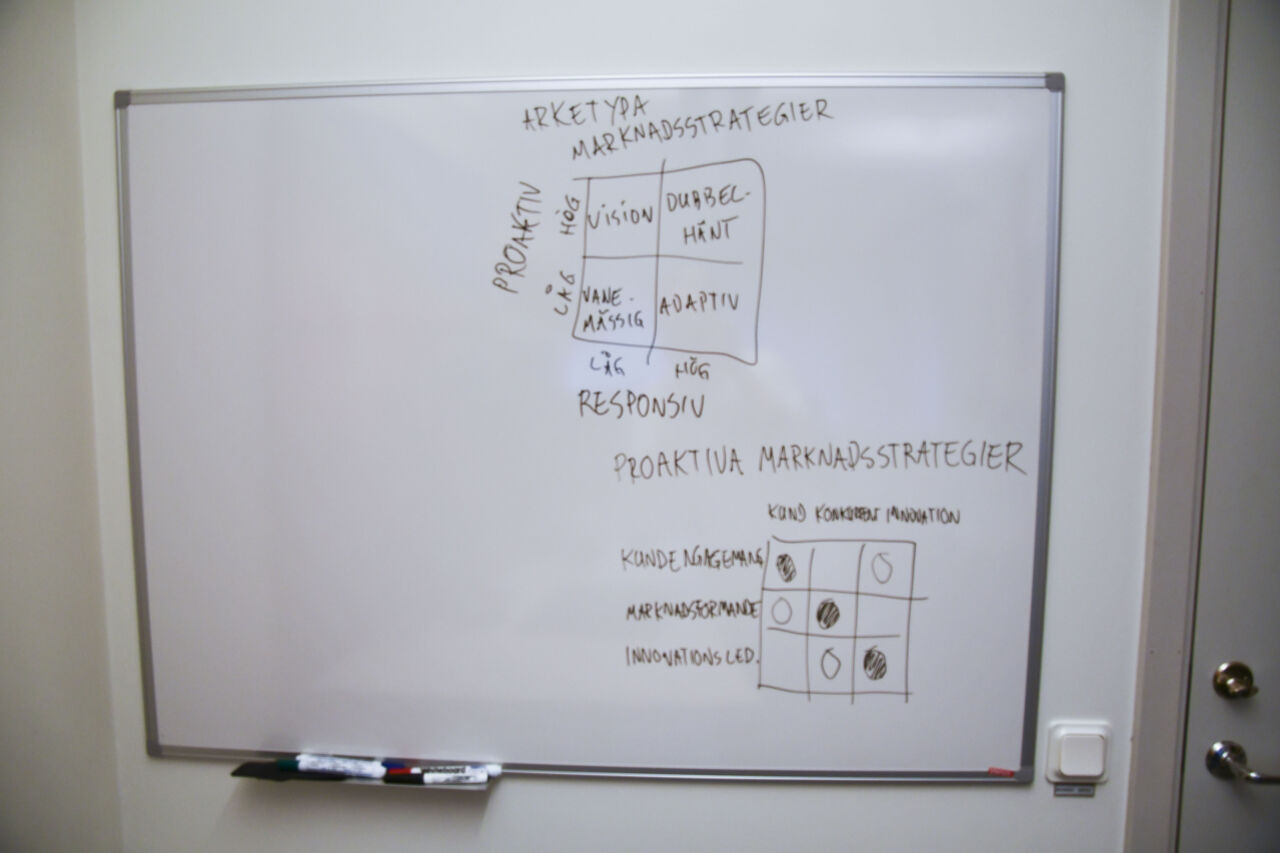 ARKETYPA
MARKNADSSTRATEGIER
PROAKTIV
HÖG
VISION
DUBBEL-
HÄNT
LÅG
VANE-
MÄSSIG
ADAPTIV
LÅG HÖG
RESPONSIV
PROAKTIVA MARKNADSSTRATEGIER
KUND KONKURRENT INNOVATION
KUNDENGAGEMANG
MARKNADSFORMANDE
INNOVATIONSLED.